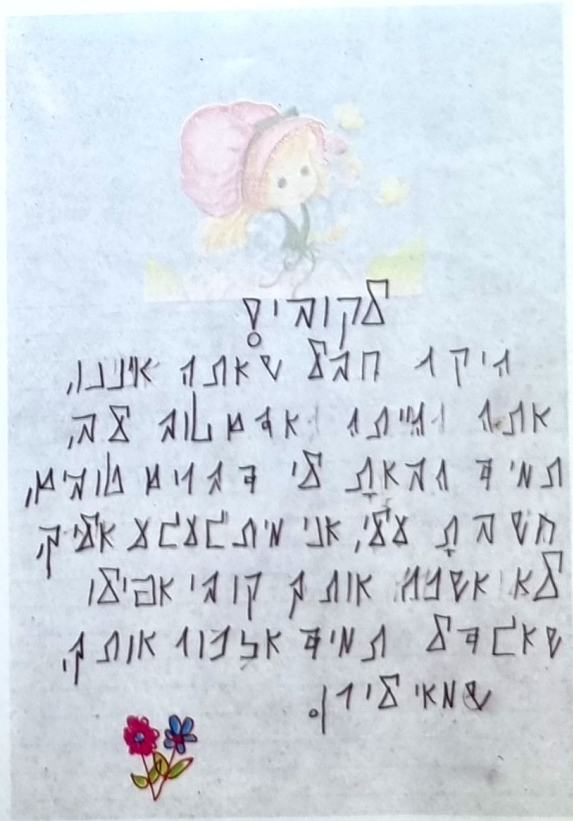 לקובי!
היקר חבל שאתה איננו,
אתה הייתה אדם טוב לב,
תמיד הבאת לי דברים טובים,
חשבת עלי, אני מיתגעגע אליך,
לא אשכח אותך קובי אפילו
שאגדל תמיד אזכור אותך,
שמאי לירן.